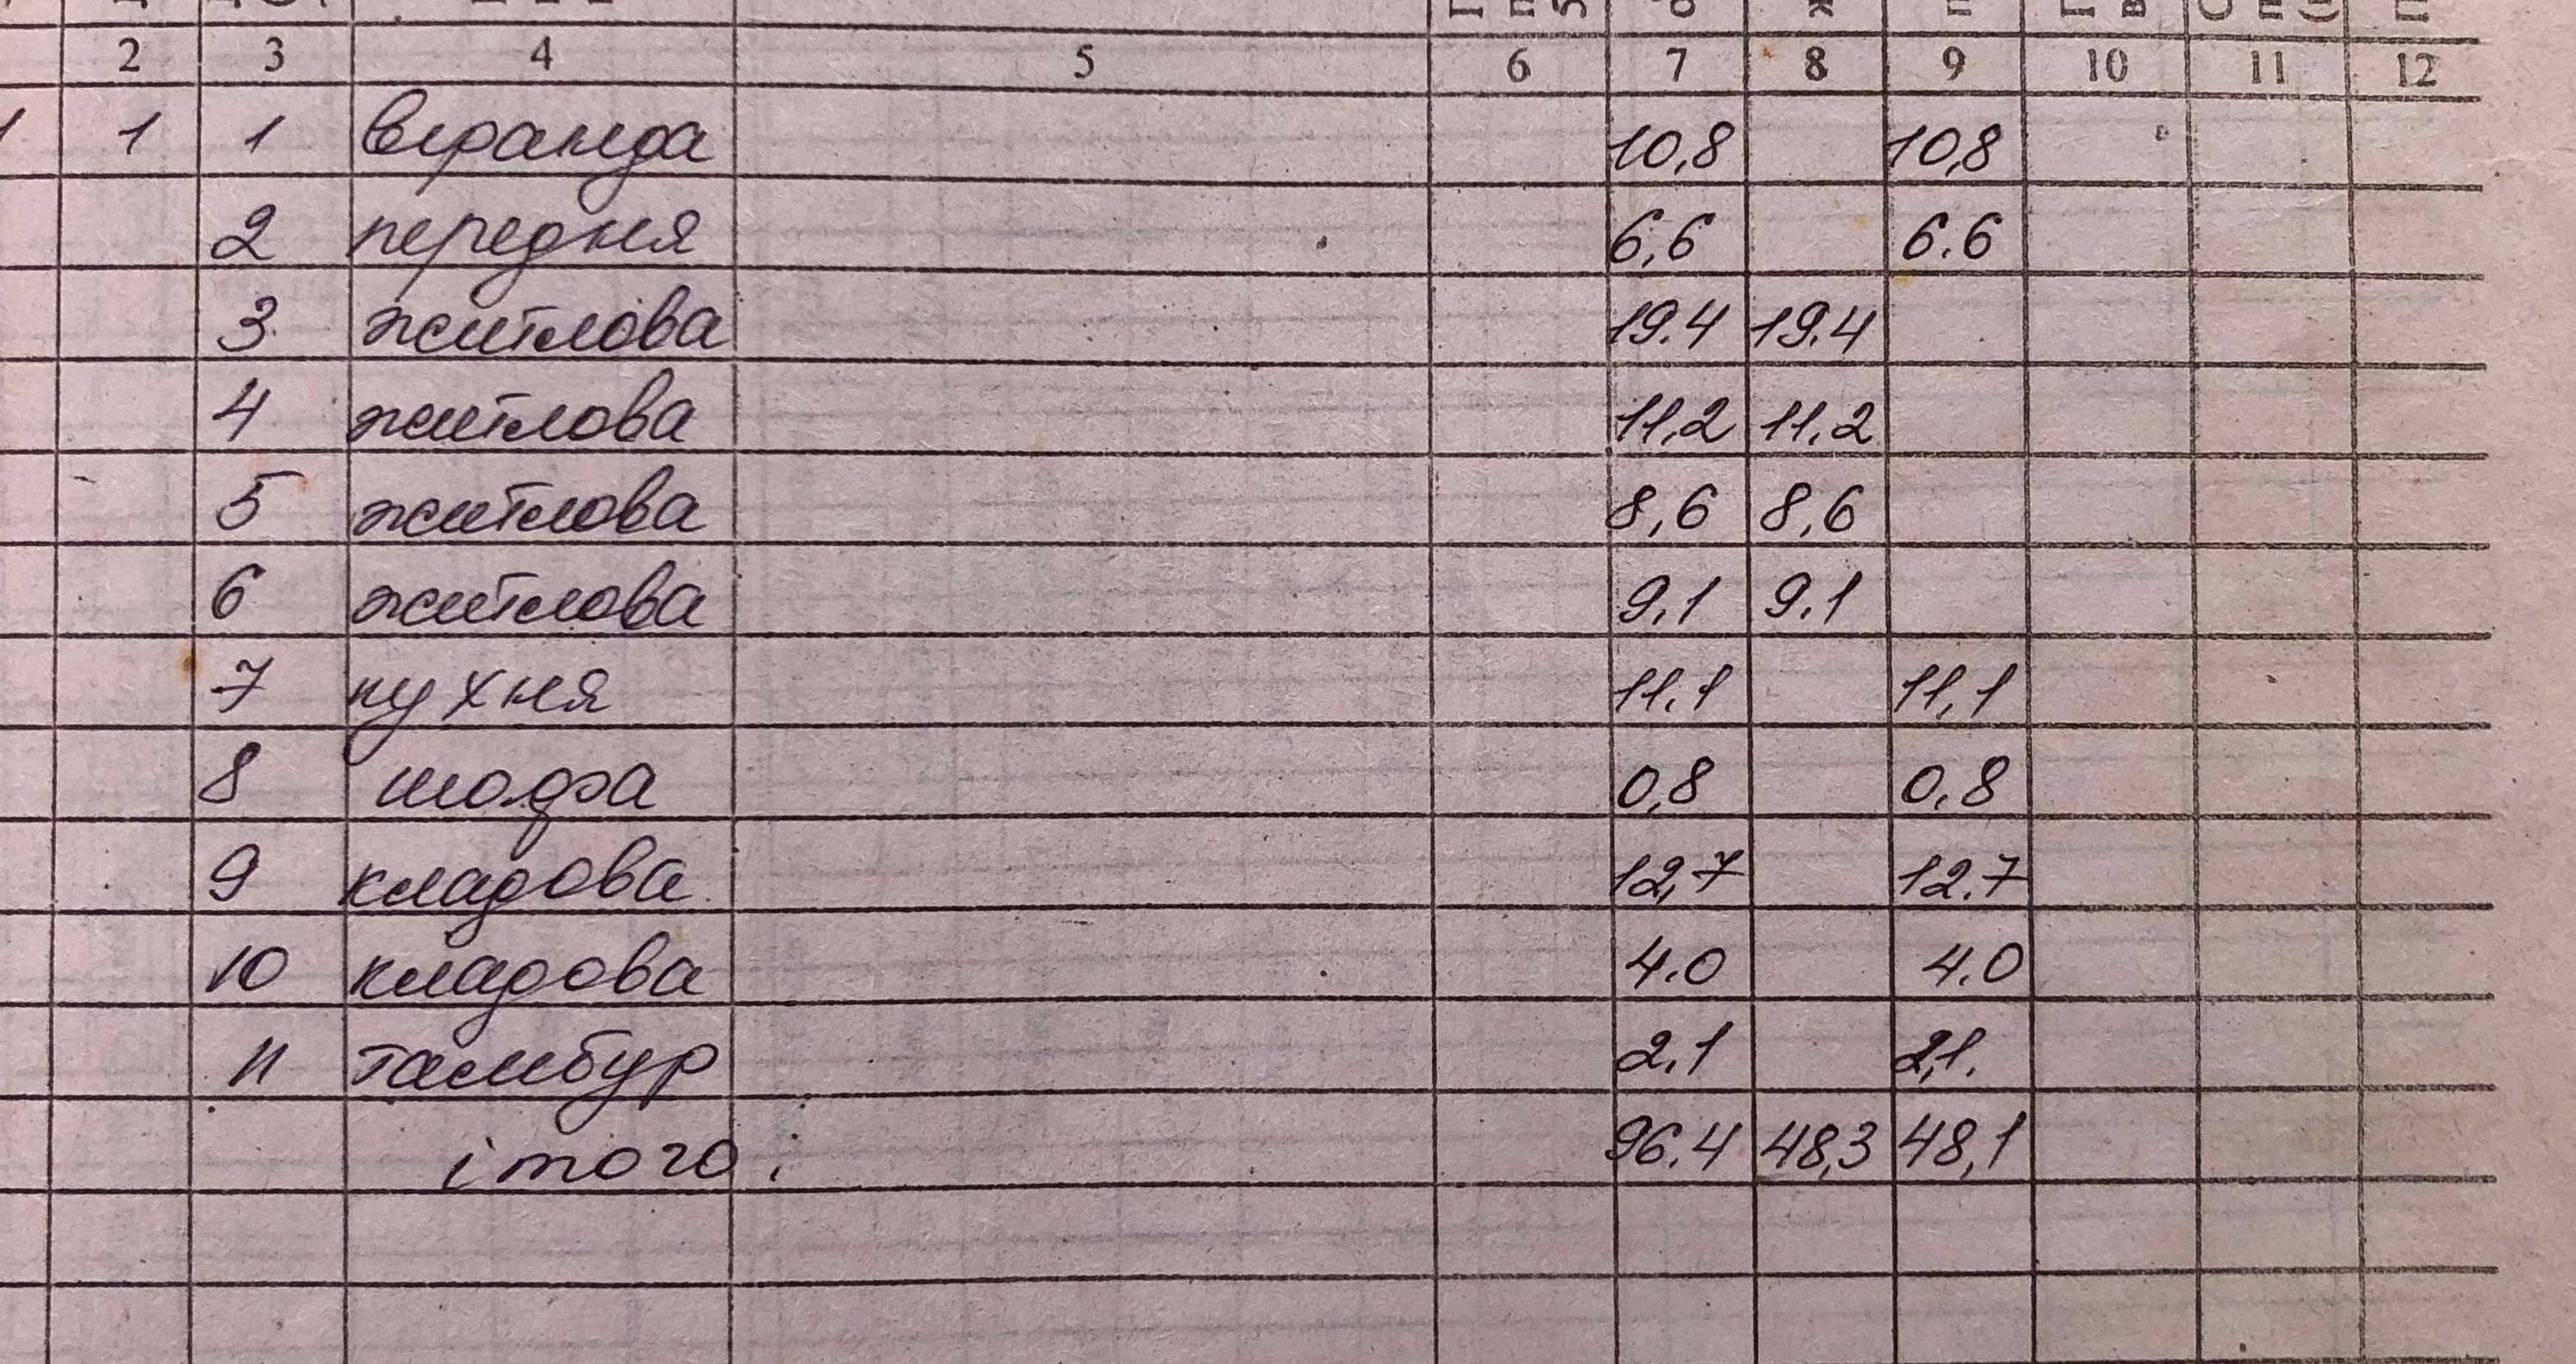 2 3 4 5 6 7 8 9 10 11 12
1 1 1 веранда 10,8 10,8
2 передня 6,6 6.6
3 житлова 19.4 19.4
4 житлова 11,2 11.2
5 житлова 8,6 8,6
6 житлова 9.1 9.1
7 кухня 11.1 11,1
8 шафа 0,8 0.8
9 кладова 12,7 12.7
10 кладова 4.0 4.0
11 тамбур 2.1 2,1.
ітого: 96.4 48,3 48,1